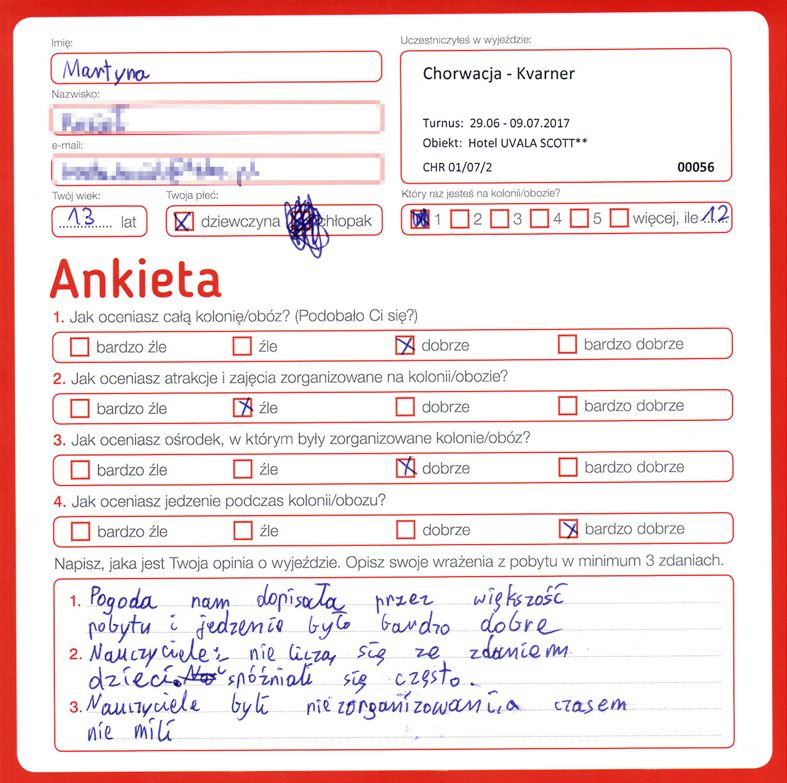 Imię:
Martyna
Nazwisko:
e-mail:
Twój wiek:
13 lat
Twoja płeć:
dziewczyna chłopak
Uczestniczyłeś w wyjeździe:
Chorwacja - Kvarner
Turnus: 29.06 - 09.07.2017
Obiekt: Hotel UVALA SCOTT**
CHR 01/07/2 00056
Który raz jesteś na kolonii/obozie?
1 2 3 4 5 więcej, ile 12
Ankieta
1. Jak oceniasz całą kolonię/obóz? (Podobało Ci się?)
bardzo źle źle dobrze bardzo dobrze
2. Jak oceniasz atrakcje i zajęcia zorganizowane na kolonii/obozie?
bardzo źle źle dobrze bardzo dobrze
3. Jak oceniasz ośrodek, w którym były zorganizowane kolonie/obóz?
bardzo źle źle dobrze bardzo dobrze
4. Jak oceniasz jedzenie podczas kolonii/obozu?
bardzo źle źle dobrze bardzo dobrze
Napisz, jaka jest Twoja opinia o wyjeździe. Opisz swoje wrażenia z pobytu w minimum 3 zdaniach.
1. Pogoda nam dopisała przez większość
pobytu i jedzenie było bardzo dobre
2. Nauczyciele nie liczą się ze zdaniem
dzieci. spóźniali się często.
3. Nauczyciele byli niezorganizowani, a czasem
nie mili